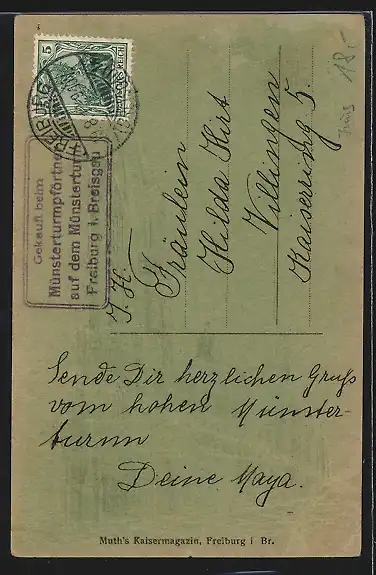 18.-
5
DEUTSCHES REICH
FREIBURG
Gekauft beim
Münsterturmpförtner
auf dem Münsterturm
Freiburg i. Breisgau
Fräulein
Hilda Hirt
Villingen
Kaiserring 5.
Sende Dir herzlichen Gruß
vom hohen Münster-
turm
Deine Maya.
Muth's Kaisermagazin, Freiburg i Br.